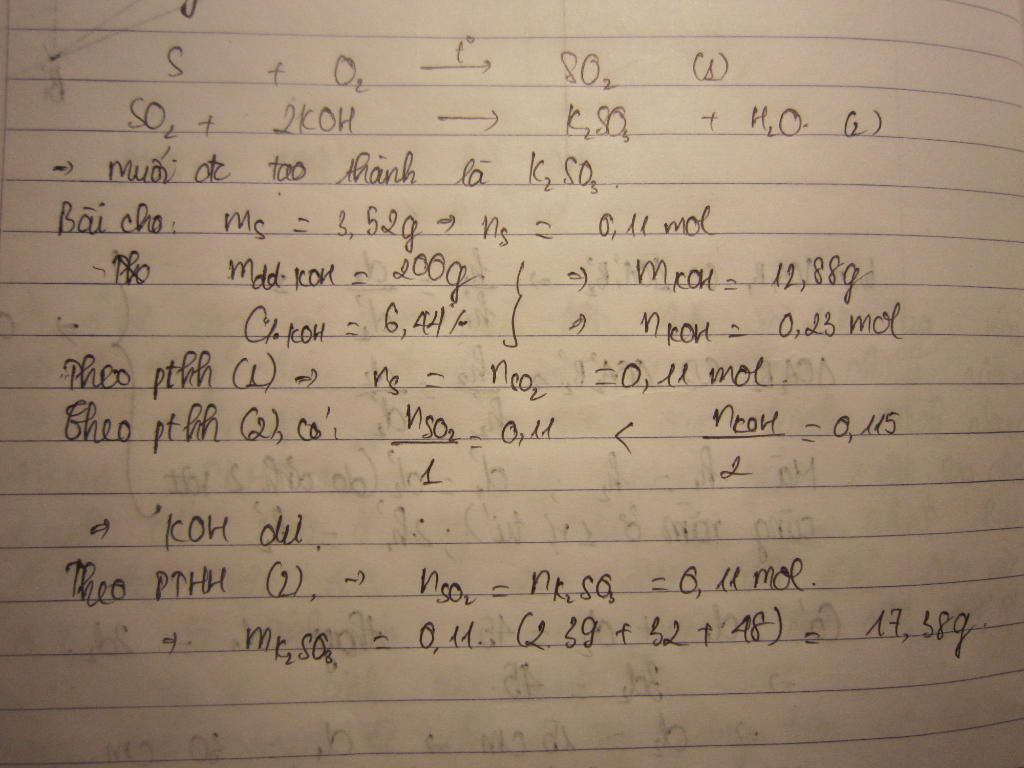 S + O₂ —t°→ SO₂ (1)
SO₂ + 2KOH → K₂SO₃ + H₂O. (2)
→ muối đc tạo thành là K₂SO₃.
Bài cho: mS = 3,52g → nS = 0,11 mol
mdd KOH = 200g } ⇒ mKOH = 12,88g
C%KOH = 6,44% ⇒ nKOH = 0,23 mol
Theo pthh (1) → nS = nSO₂ = 0,11 mol.
Theo pthh (2), có: nSO₂/1 = 0,11 < nKOH/2 = 0,115
⇒ KOH dư.
Theo PTHH (2), → nSO₂ = nK₂SO₃ = 0,11 mol.
⇒ mK₂SO₃ = 0,11. (2.39 + 32 + 48) = 17,38g.